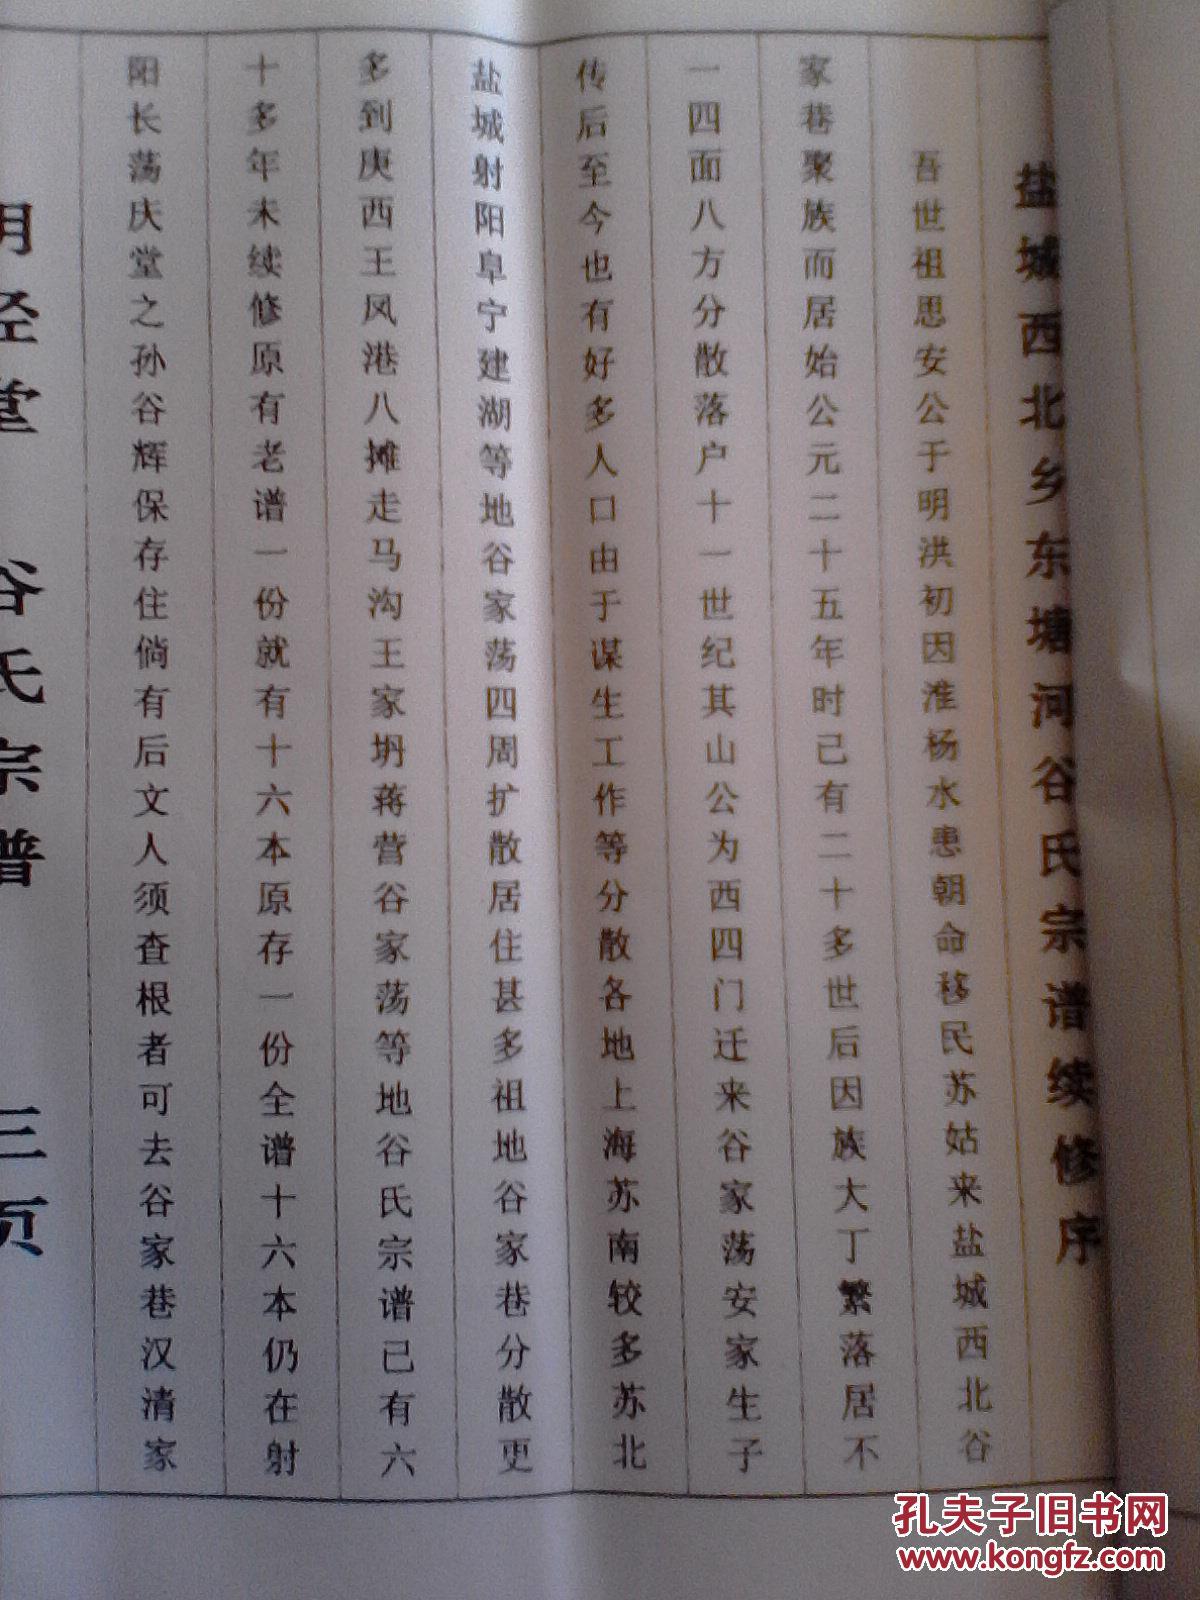 盐城西北乡东塘河谷氏宗谱续修序
吾世祖思安公于明洪初因淮杨水患朝命移民苏姑来盐城西北谷
家巷聚族而居始公元二十五年时已有二十多世后因族大丁繁落居不
一四面八方分散落户十一世纪其山公为西四门迁来谷家荡安家生子
传后至今也有好多人口由于谋生工作等分散各地上海苏南较多苏北
盐城射阳阜宁建湖等地谷家荡四周扩散居住甚多祖地谷家巷分散更
多到庚西王风港八摊走马沟王家坍蒋营谷家荡等地谷氏宗谱已有六
十多年未续修原有老谱一份就有十六本原存一份全谱十六本仍在射
阳长荡庆堂之孙谷辉保存住倘有后文人须查根者可去谷家巷汉清家
明经堂 谷氏宗谱 三页
孔夫子旧书网
www.kongfz.com